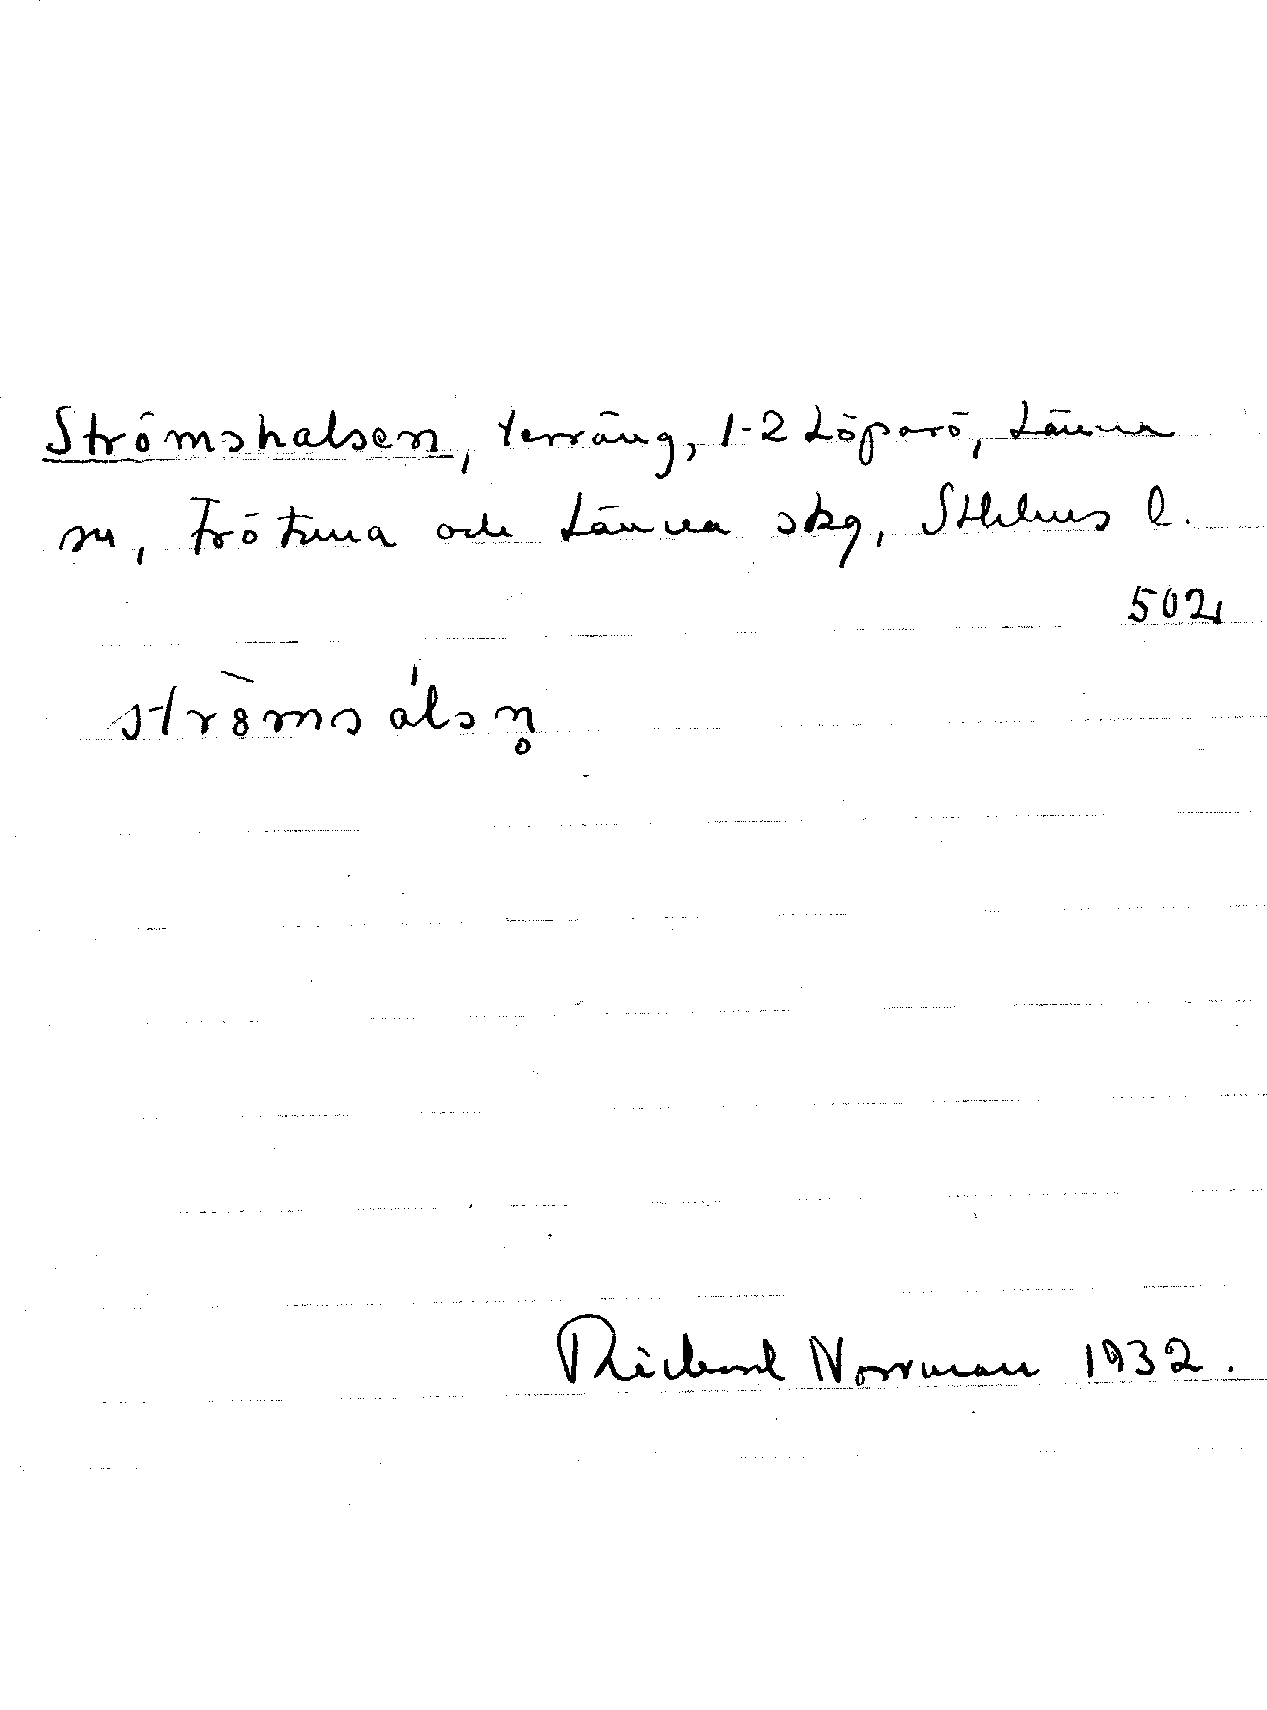 Strömshalsen, terräng, 1-2 Löparö, Länna
sn, Frötuna och Länna skg, Sthlms l.
502
strö̀msálsn̥
Rickard Norrman 1932.